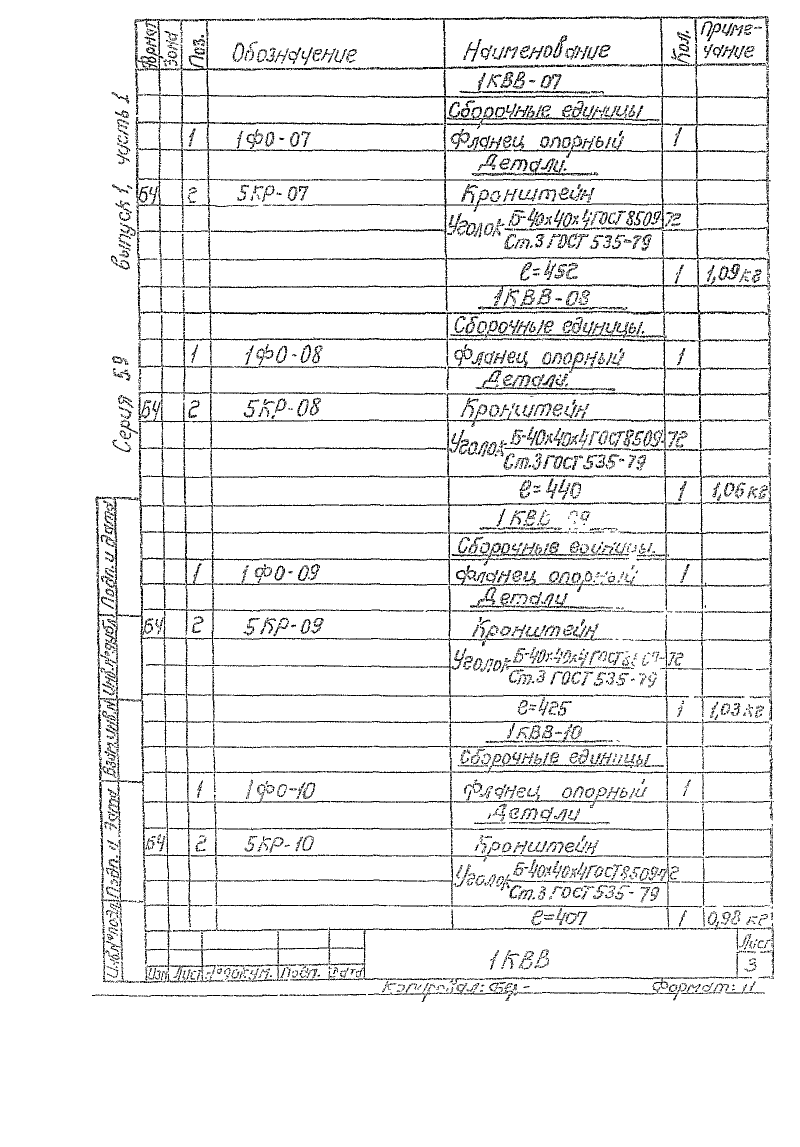 Формат Зона Поз. Обозначение Наименование Кол. Примечание
1КВВ-07
Сборочные единицы
1 1ФО-07 Фланец опорный 1
Детали.
БЧ 2 5КР-07 Кронштейн
Уголок Б-40х40х4 ГОСТ 8509-72
Ст.3 ГОСТ 535-79
ℓ=452 1 1,09кг
1КВВ-08
Сборочные единицы.
1 1ФО-08 Фланец опорный 1
Детали.
БЧ 2 5КР-08 Кронштейн
Уголок Б-40х40х4 ГОСТ 8509-72
Ст.3 ГОСТ 535-79
ℓ=440 1 1,06кг
1КВВ 09
Сборочные единицы.
1 1ФО-09 Фланец опорный 1
Детали
БЧ 2 5КР-09 Кронштейн
Уголок Б-40х40х4 ГОСТ 8509-72
Ст.3 ГОСТ 535-79
ℓ=425 1 1,03кг
1КВВ-10
Сборочные единицы
1 1ФО-10 Фланец опорный 1
Детали
БЧ 2 5КР-10 Кронштейн
Уголок Б-40х40х4 ГОСТ 8509-72
Ст.3 ГОСТ 535-79
ℓ=407 1 0,98 кг
Изм Лист № докум. Подп. Дата
1КВВ
Лист
3
Копировал:
Формат: 11
Серия 5.9 выпуск 1, часть 1
Инв.№ подл. Подп. и дата Взам.инв.№ Инв.№ дубл. Подп. и дата